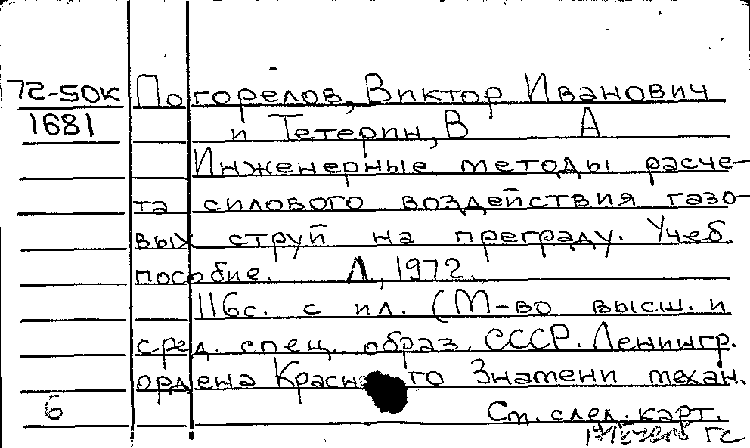 72-50к Погорелов, Виктор Иванович
1681 и Тетерин, В А
Инженерные методы расче-
та силового воздействия газо-
вых струй на преграду. Учеб.
пособие. Л, 1972.
116с. с ил. (М-во высш. и
сред. спец. образ. СССР. Ленингр.
ордена Красного Знамени механ.
6 См. след. карт.
ГС